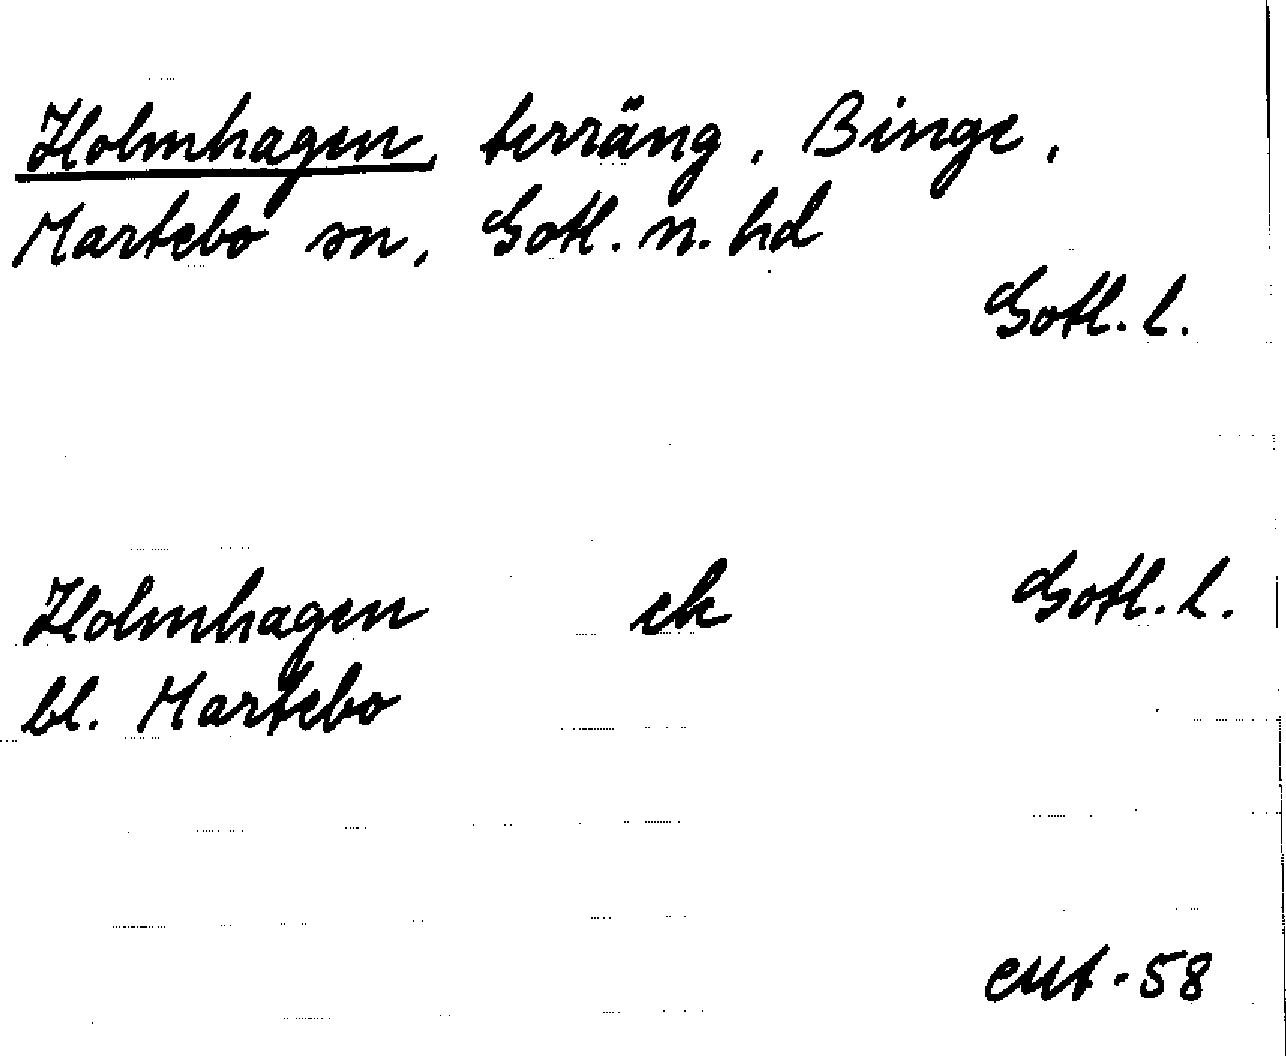 Holmhagen, terräng, Binge,
Martebo sn, Gotl. n. hd
Gotl. l.
Holmhagen ek Gotl. l.
bl. Martebo
-58